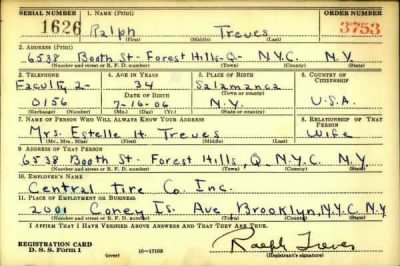 SERIAL NUMBER 1. NAME (Print) ORDER NUMBER
1626 Ralph Treves 3753
(First) (Middle) (Last)
2. ADDRESS (Print)
6538 Booth St- Forest Hills-Q- N.Y.C. N.Y
(Number and street or R. F. D. number) (Town) (County) (State)
3. TELEPHONE 4. AGE IN YEARS 5. PLACE OF BIRTH 6. COUNTRY OF CITIZENSHIP
2- 34 Salamanca
DATE OF BIRTH (Town or county)
0156 7-16-06 N.Y. U.S.A.
(Exchange) (Number) (Mo.) (Day) (Yr.) (State or country)
7. NAME OF PERSON WHO WILL ALWAYS KNOW YOUR ADDRESS 8. RELATIONSHIP OF THAT PERSON
Mrs. Estelle H. Treves Wife
(Mr., Mrs., Miss) (First) (Middle) (Last)
9. ADDRESS OF THAT PERSON
6538 Booth St- Forest Hills, Q. N.Y.C. N.Y.
(Number and street or R. F. D. number) (Town) (County) (State)
10. EMPLOYER'S NAME
Central Tire Co. Inc.
11. PLACE OF EMPLOYMENT OR BUSINESS
2001 Coney Is. Ave Brooklyn, N.Y.C N.Y
(Number and street or R. F. D. number) (Town) (County) (State)
I AFFIRM THAT I HAVE VERIFIED ABOVE ANSWERS AND THAT THEY ARE TRUE.
REGISTRATION CARD
D. S. S. Form 1 (over) 16-17105 Ralph Treves
(Registrant's signature)